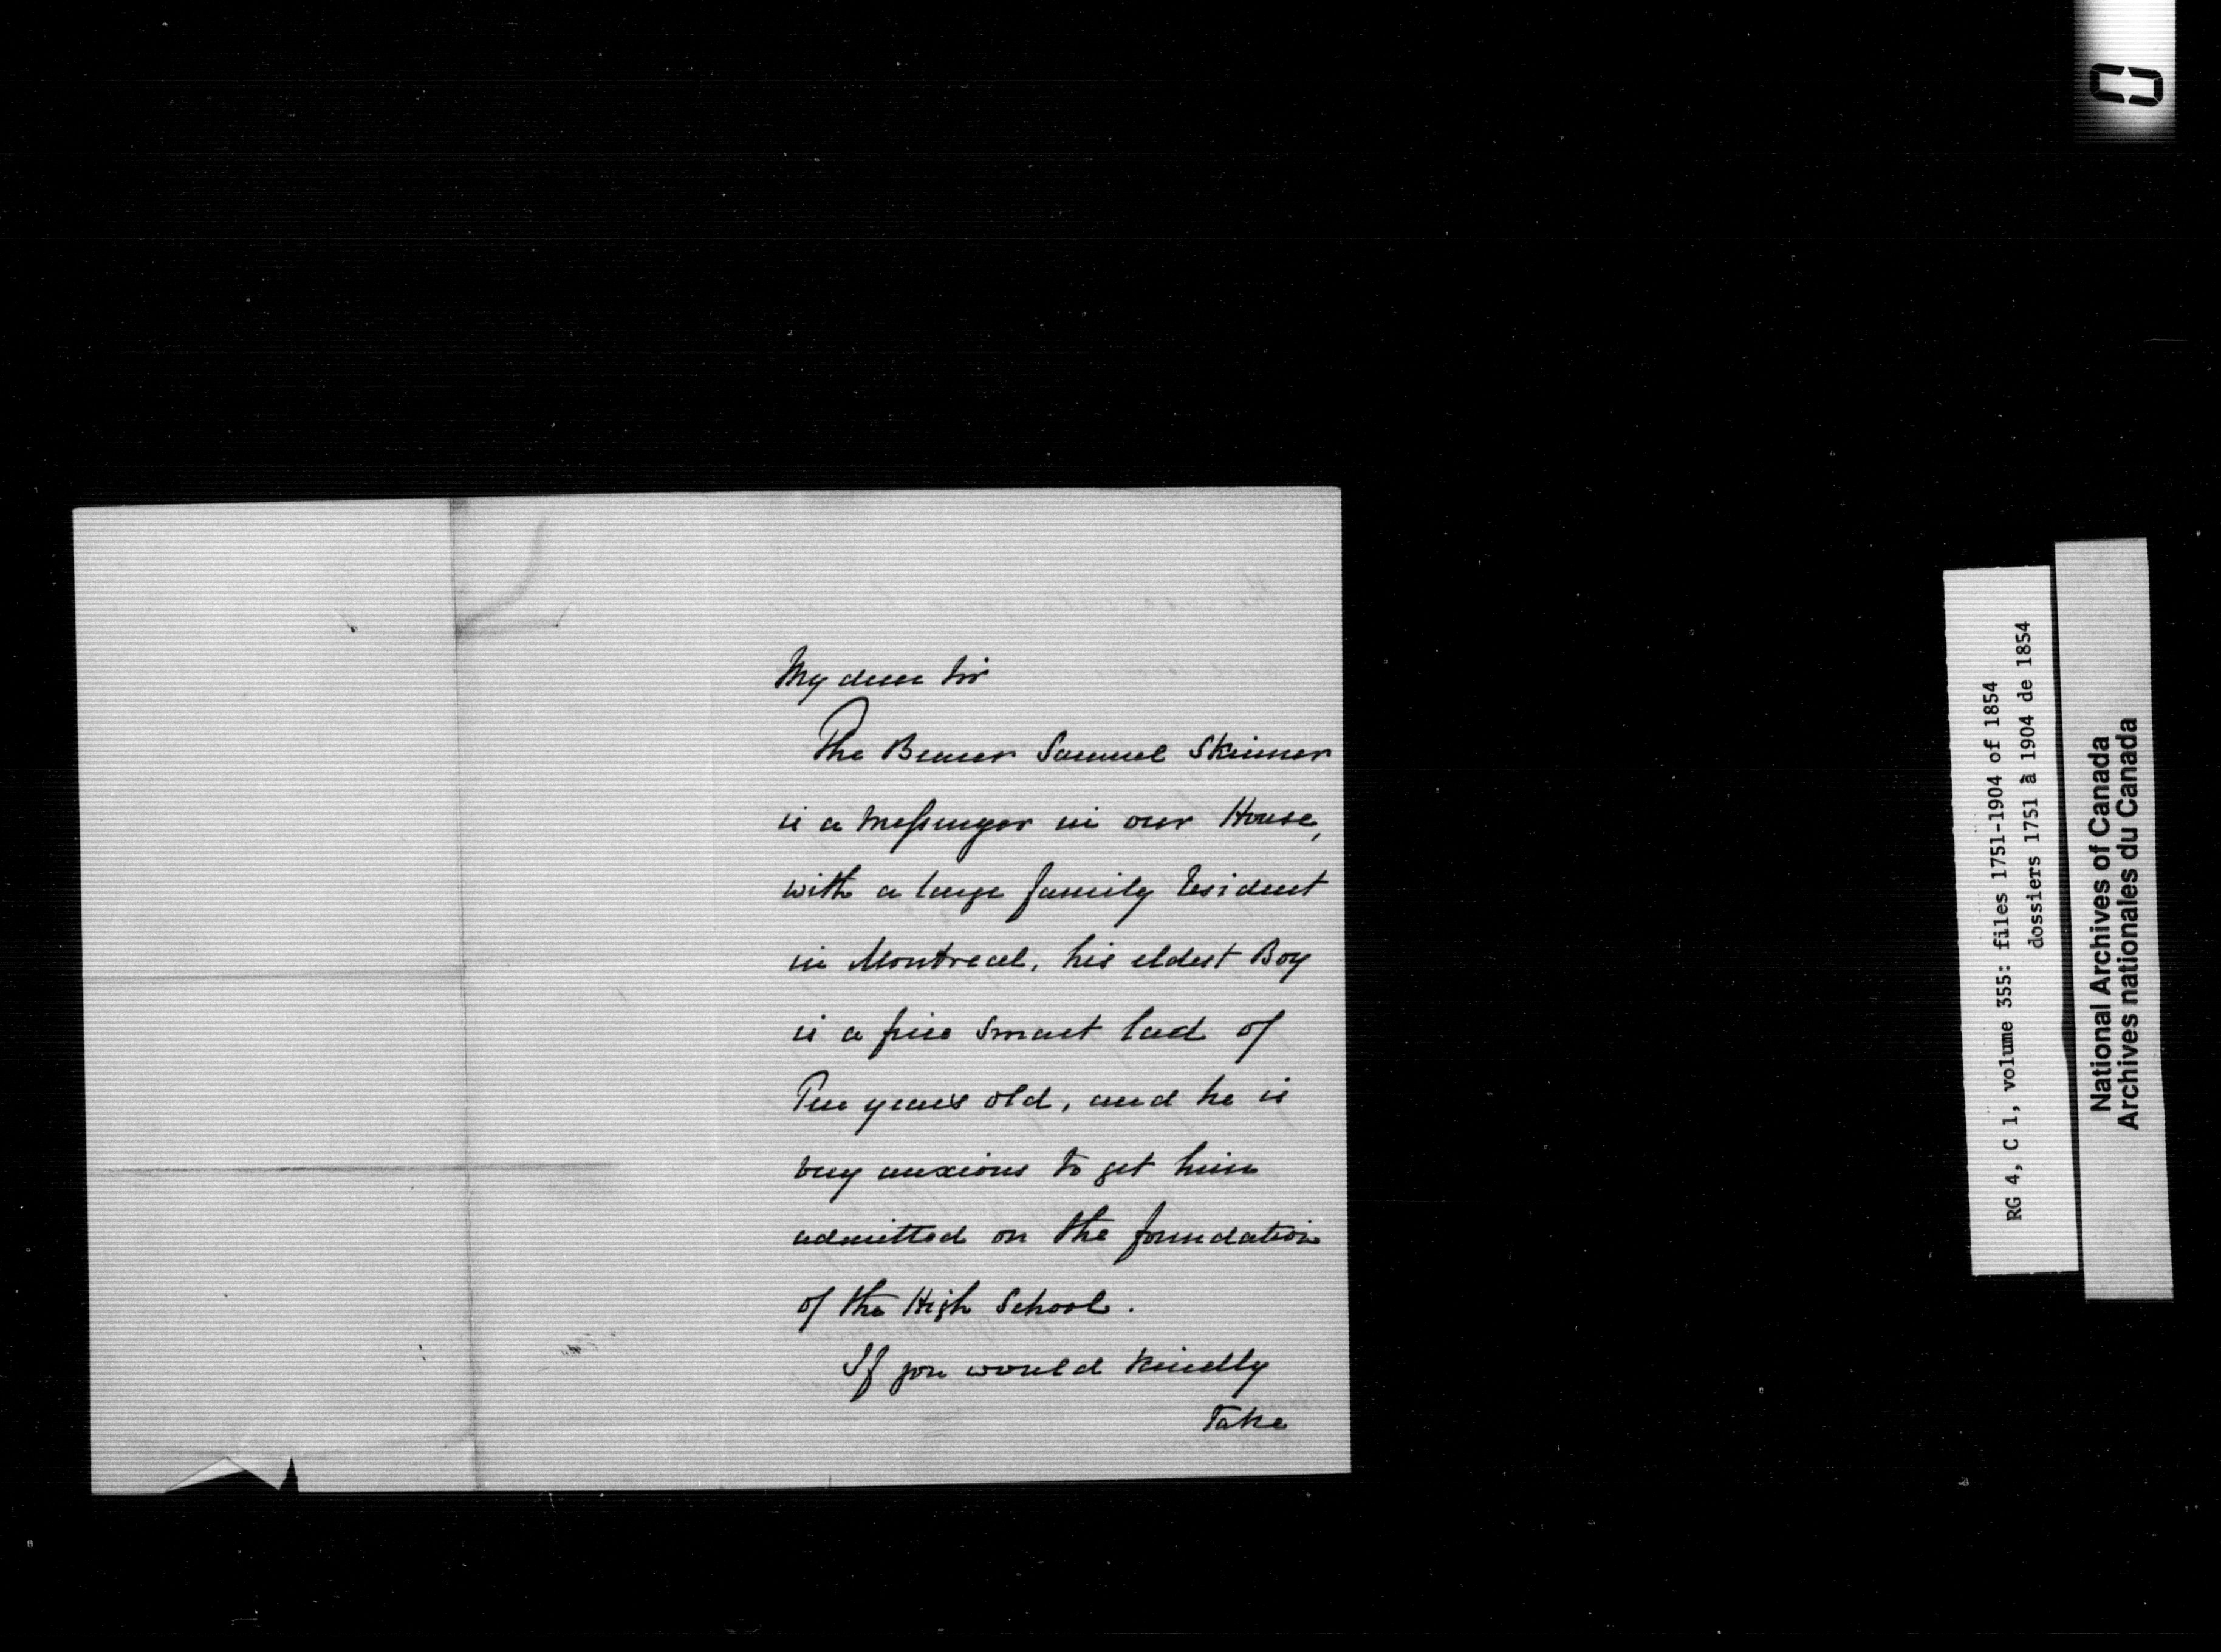 My dear Sir
The Bearer Samuel Skinner
is a Messenger in our House,
with a large family resident
in Montreal, his eldest Boy
is a fine smart lad of
Ten years old, and he is
very anxious to get him
admitted on the foundation
of the High School.
If you would kindly
Take
RG 4, C 1, volume 355: files 1751-1904 of 1854
dossiers 1751 à 1904 de 1854
National Archives of Canada
Archives nationales du Canada